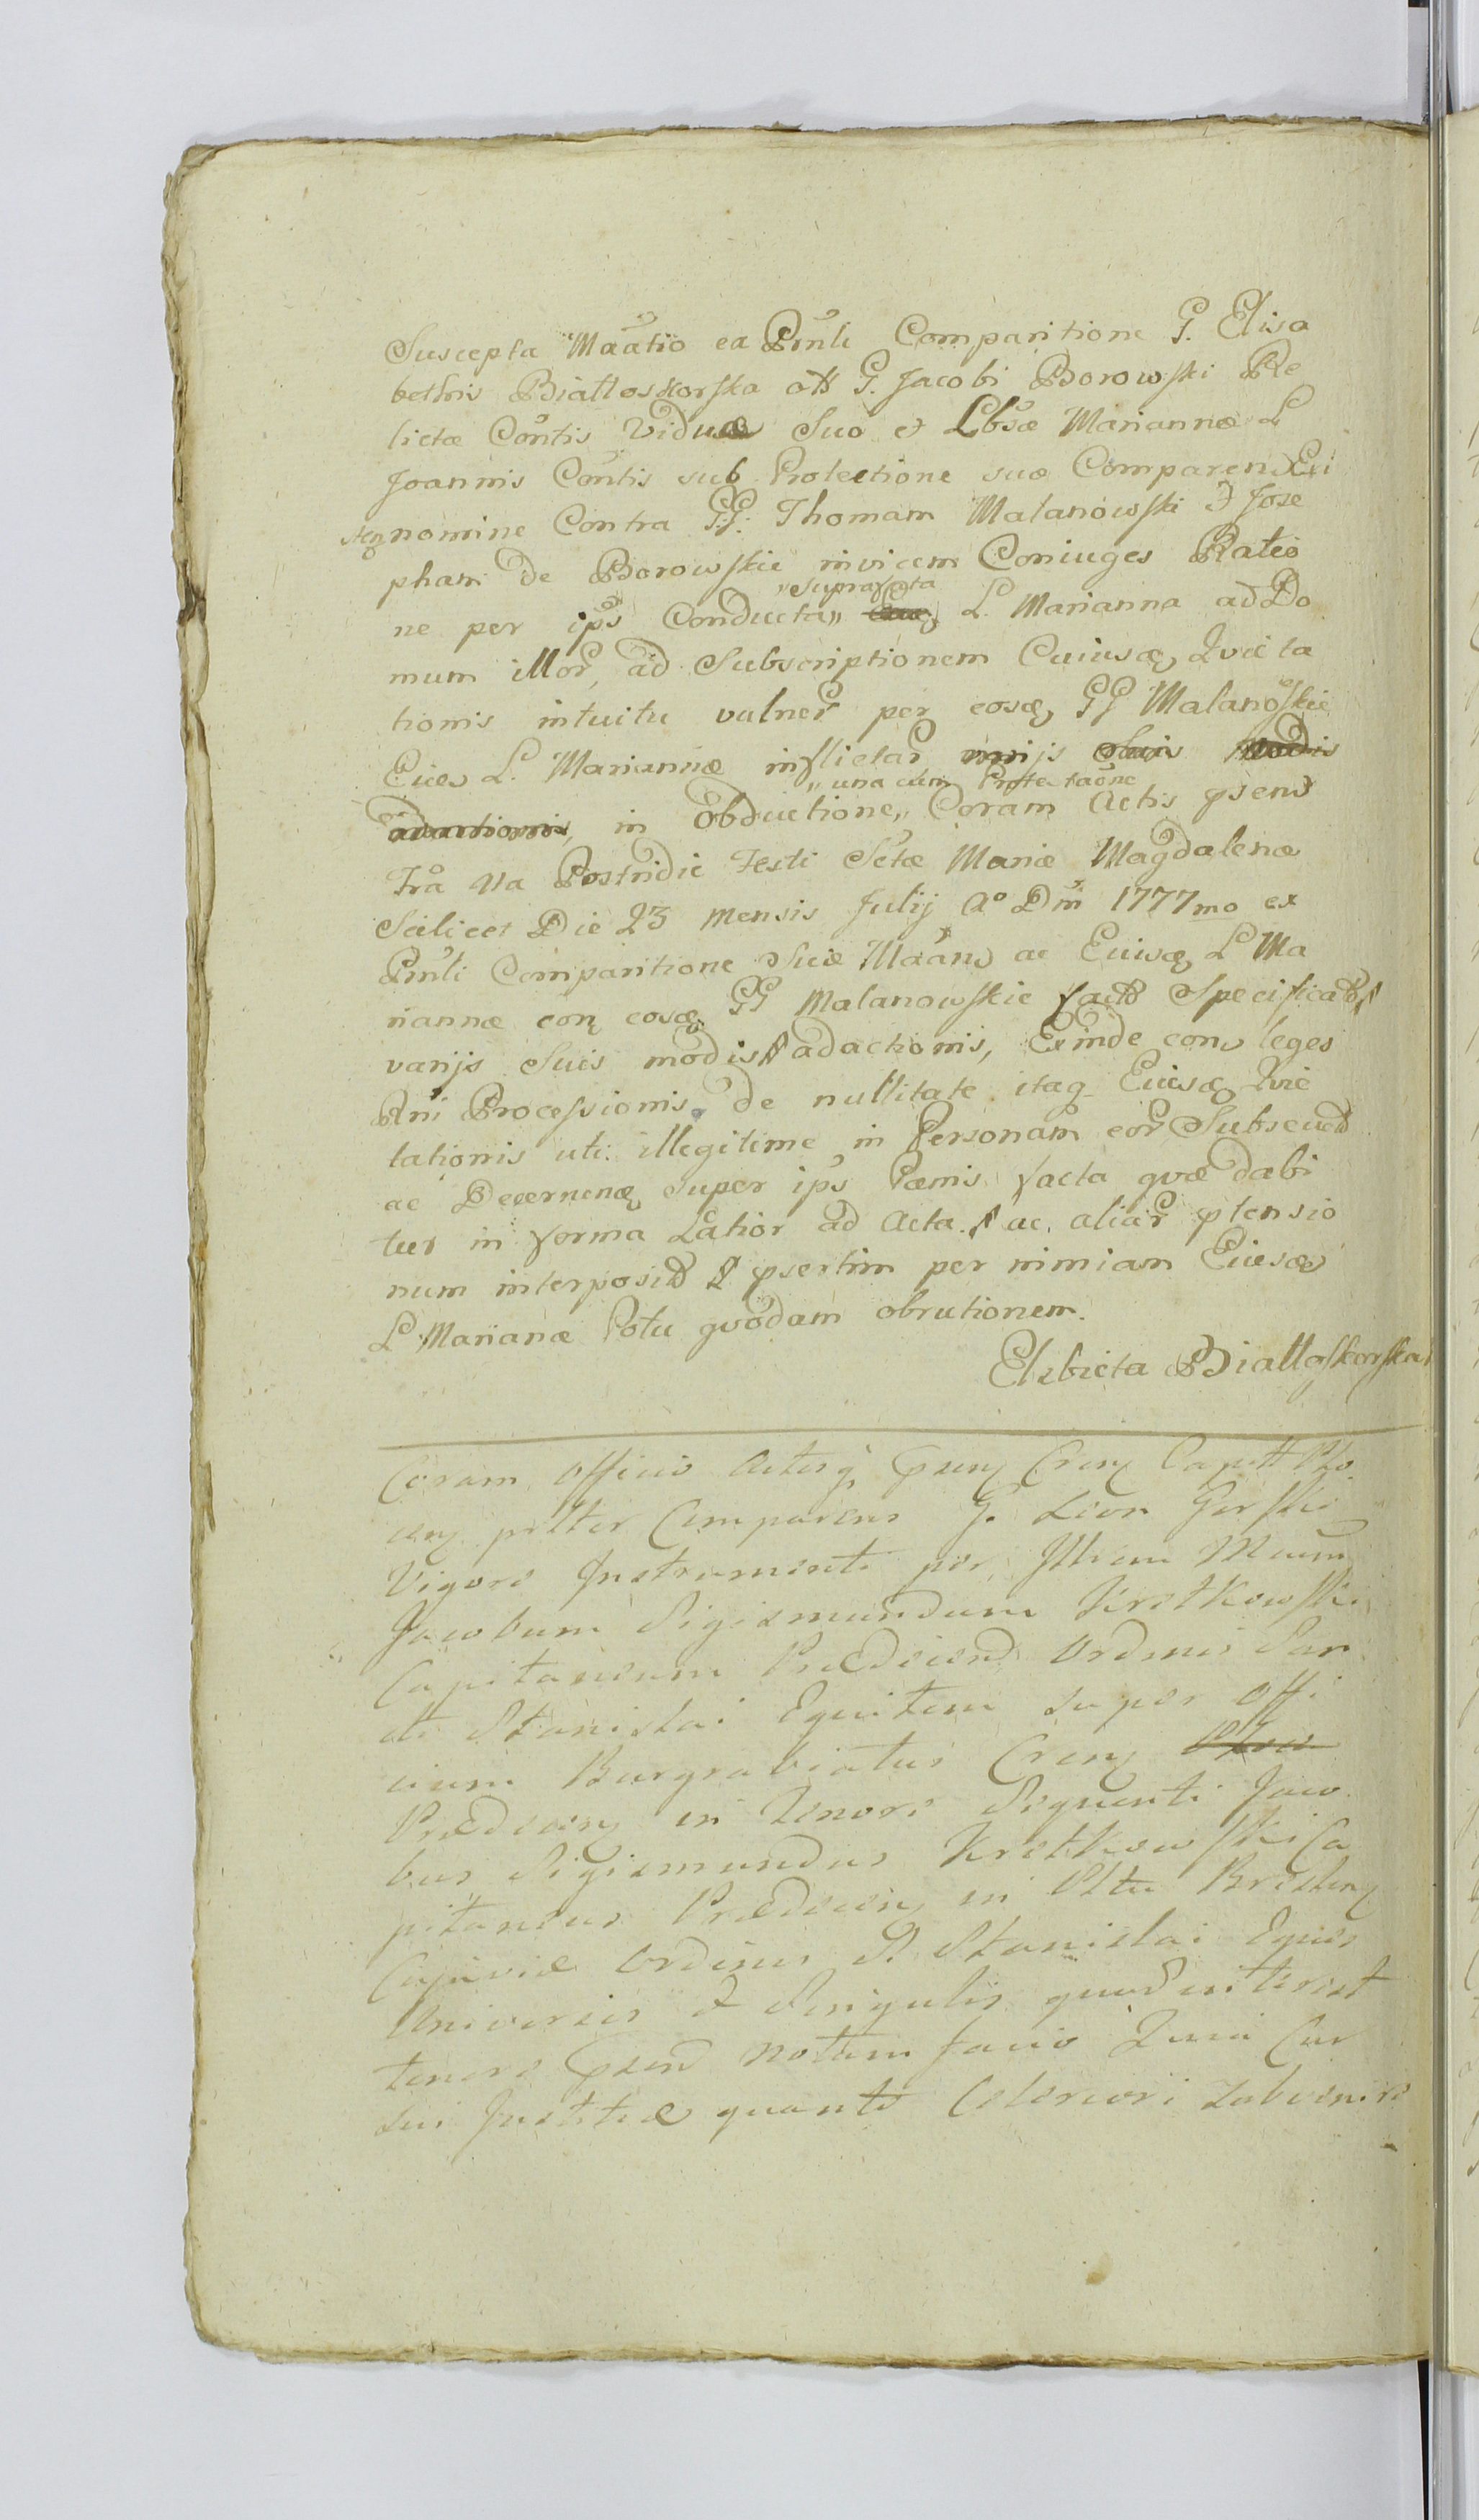 Suscepta Maãtio ea Pñnli Comparitione G. Elisa
bethis Białłoskorska ott G. Jacobi Borowski Re
lictæ Cõntis Viduæ Suo et Lbsæ Mariannæ L
Joannis Cõntis sub Protectione suæ Comparen Eu
nomine Contra GG. Thomam Malanowski & Jose
pham de Borowskie invicem Coniuges Ratio
ne per ips Conducta „suprascta L. Marianna ad Do
mum illor, ad Subscriptionem Cuiusq Quie ta
tionis intuitu vulner per eosq GG Malanoskie
Euies L. Mariannæ inflictar
in Obductione „una cum Protestaõne Coram Actis psend
Frã Va Postridie Festi Sctæ Mariæ Magdalenæ
Scilicet Die 23 Mensis Julij Aº Dni 1777mo ex
Pñnli Comparitione Suæ Maãnd ac Euisq L Ma
riannæ con eosq GG Malanowskie factd Specificatd
varijs Suis modis adactionis, Exinde con leges
Rni Processionis de nullitate itaq Euisq Quie
tationis uti illegitime in Personam eor Subsecutd
ac Decernenq super ips Pœnis facta quæ dabi
tur in forma Latior ad Acta ac aliar ptensio
num interposid psertim per nimiam Euisq
L Marianæ Potu quodam obrutionem.
Elzbieta Białłoskorska
Coram Officio Actisq psen Cren Capitt
cen pslter Comparens G. Leon Gorski
Vigore Instrumenti per Illrem Mcum
Jacobum Sigismundum Kretkowski
Capitaneum Prædecend Ordinis San
cti Stanislai Equitem super offi
cium Burgrabiatus Cren
Prædecen in Tenore Sequenti Jaco
bus Sigismundus Kretkowski Ca
pitaneus Prædecen in Plttu Bresten
Cujaviæ Ordinis S. Stanislai Eques
Universis & Singulis quod interest
tenore psend notum facio Quia Cur
sui Justitiæ quanto Celeriori subvenire